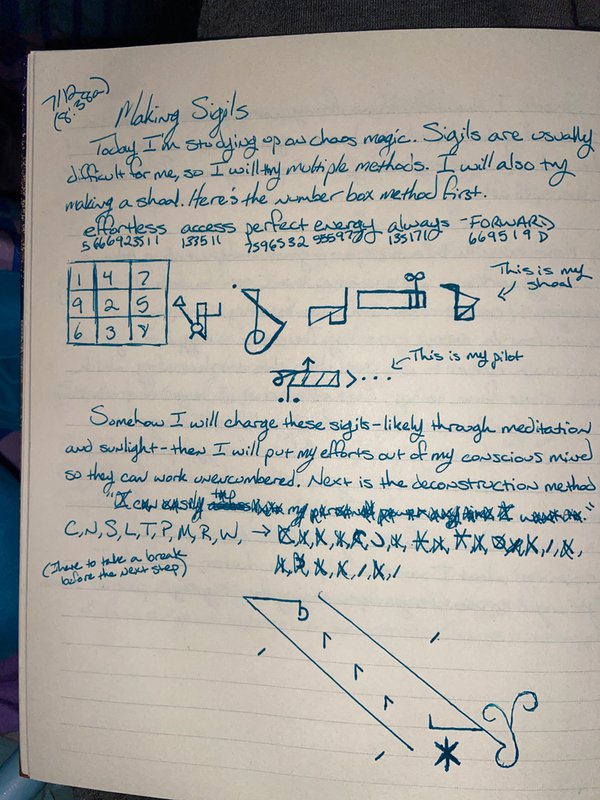 7/12
(8:38a)
Making Sigils
Today I'm studying up on chaos magic. Sigils are usually
difficult for me, so I will try multiple methods. I will also try
making a shoal. Here's the number box method first.
effortless access perfect energy always -FORWARD
5666923511 133511 7596532 555977 1351710 669519D
1 4 7
9 2 5
6 3 8
This is my
shoal
This is my pilot
Somehow I will charge these sigils - likely through meditation
and sunlight - then I will put my efforts out of my conscious mind
so they can work unencumbered. Next is the deconstruction method
"I can easily my
C, N, S, L, T, P, M, R, W, →
(I have to take a break
before the next step)